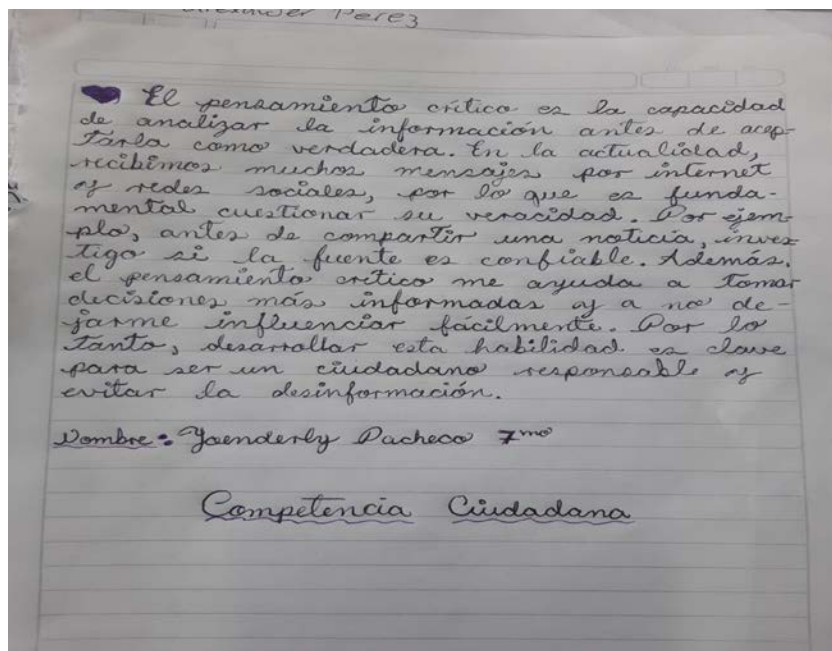 Perez
El pensamiento crítico es la capacidad
de analizar la información antes de acep-
tarla como verdadera. En la actualidad,
recibimos muchos mensajes por internet
y redes sociales, por lo que es funda-
mental cuestionar su veracidad. Por ejem-
plo, antes de compartir una noticia, inves
tigo si la fuente es confiable. Además,
el pensamiento crítico me ayuda a tomar
decisiones más informadas y a no de-
jarme influenciar fácilmente. Por lo
tanto, desarrollar esta habilidad es clave
para ser un ciudadano responsable y
evitar la desinformación.
Nombre: Yoenderly Pacheco 7mo
Competencia Ciudadana